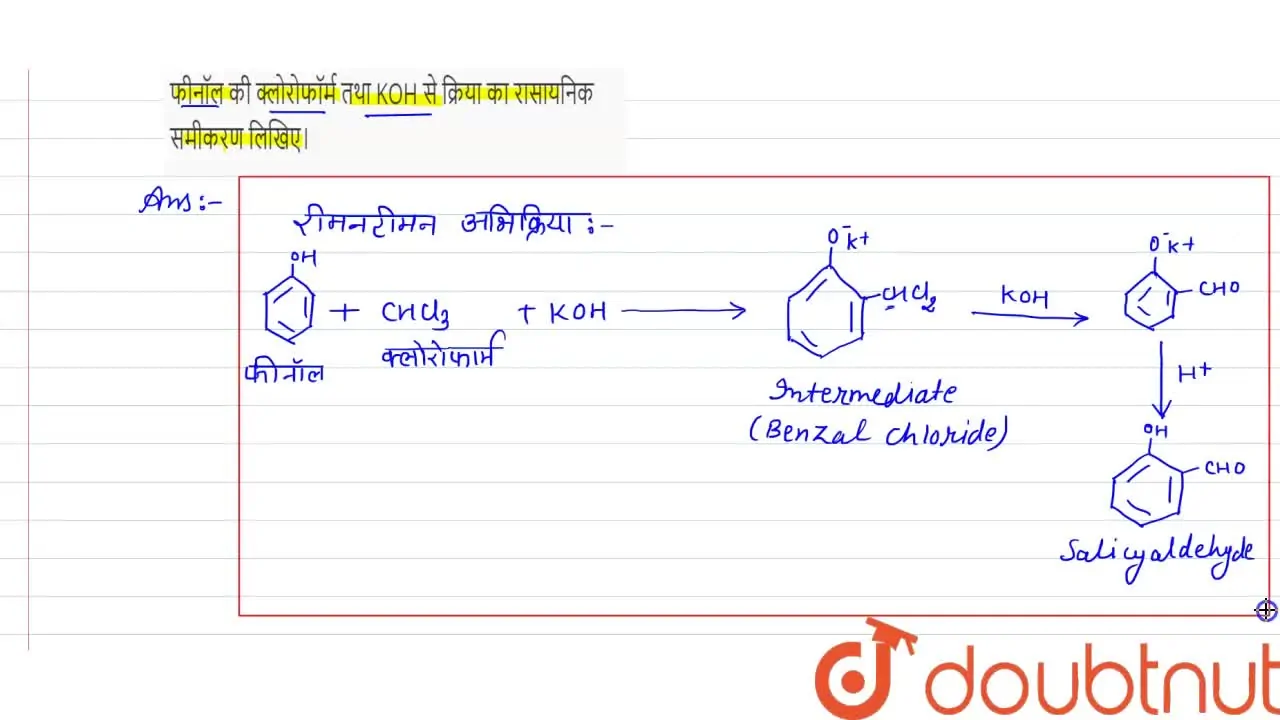 फीनॉल की क्लोरोफॉर्म तथा KOH से क्रिया का रासायनिक
समीकरण लिखिए।
Ans:-
रीमनटीमन अभिक्रिया:-
OH
+ CHCl3 + KOH
क्लोरोफार्म
फीनॉल
O⁻K+
CHCl2
Intermediate
(Benzal chloride)
KOH
O⁻K+
CHO
H+
OH
CHO
Salicyaldehyde
doubtnut